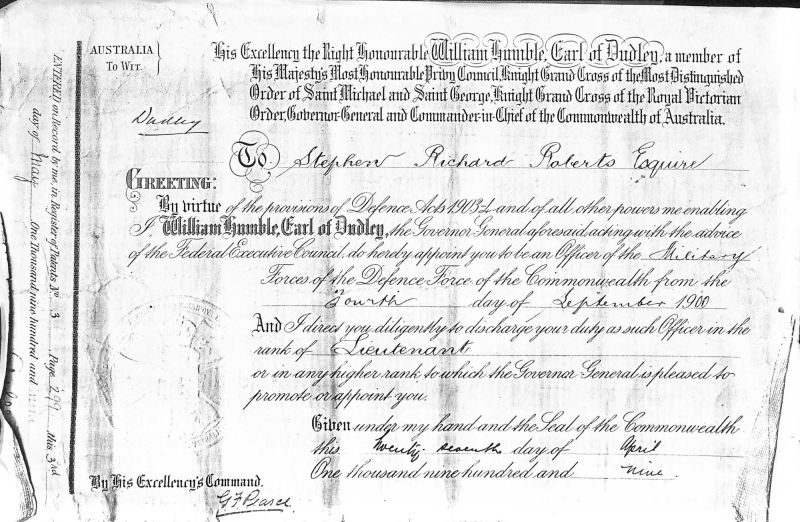 AUSTRALIA
TO WIT.
His Excellency the Right Honourable William Humble, Earl of Dudley, a member of
His Majesty's Most Honourable Privy Council, Knight Grand Cross of the Most Distinguished
Order of Saint Michael and Saint George, Knight Grand Cross of the Royal Victorian
Order, Governor-General and Commander-in-Chief of the Commonwealth of Australia.
Dudley
To Stephen Richard Roberts Esquire
GREETING:
By virtue of the provisions of Defence Acts 1903-4 and of all other powers me enabling
I William Humble, Earl of Dudley, the Governor General aforesaid, acting with the advice
of the Federal Executive Council, do hereby appoint you to be an Officer of the Military
Forces of the Defence Force of the Commonwealth from the
Fourth day of September 1900
And I direct you diligently to discharge your duty as such Officer in the
rank of Lieutenant
or in any higher rank to which the Governor General is pleased to
promote or appoint you.
Given under my hand and the Seal of the Commonwealth
this twenty-seventh day of April
One thousand nine hundred and nine.
By His Excellency's Command.
G F Pearce
ENTERED on Record by me, in Register of Patents No. 3 Page 299 this 3rd
day of May One Thousand nine hundred and